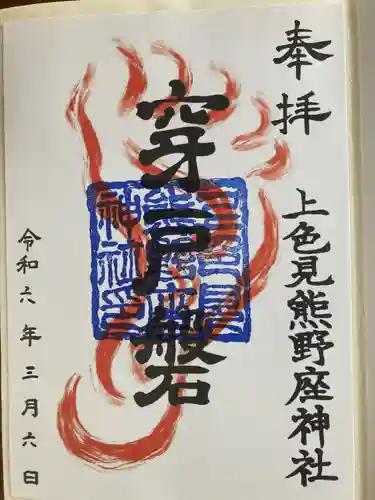 奉拝
上色見熊野座神社
穿戸磐
令和六年三月六日